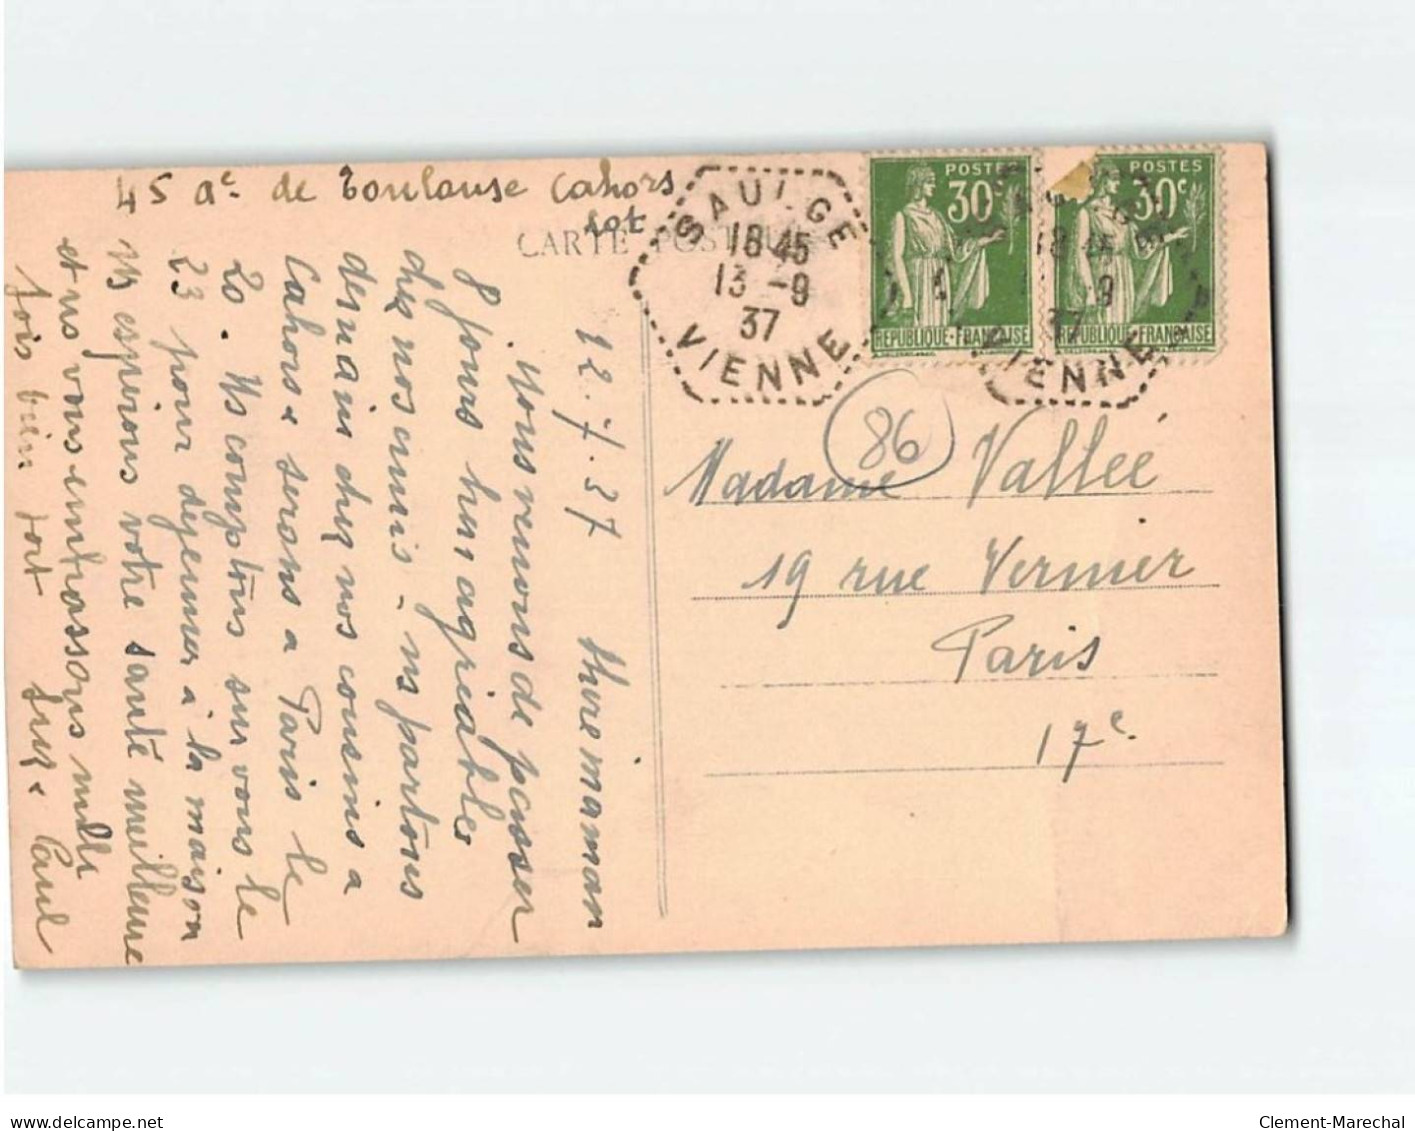 45 ae de Toulouse Cahors
Lot
CARTE POSTALE
SAULGE
18 45
13 -9
37
VIENNE
POSTES
30c
REPUBLIQUE·FRANÇAISE
POSTES
30c
REPUBLIQUE·FRANÇAISE
18 45
9
37
VIENNE
86
Madame Vallée
19 rue Vernier
Paris
17e
12.7.37 chère maman
Nous venons de passer
8 jours très agréables
chez nos amis - ns partons
demain chez nos cousins a
Cahors & serons a Paris le
20. Ns comptons sur vous le
23 pour déjeuner à la maison
Ns espérons votre santé meilleure
et ns vous embrassons mille
fois bien fort Paul
delcampe.net
Clement-Marechal